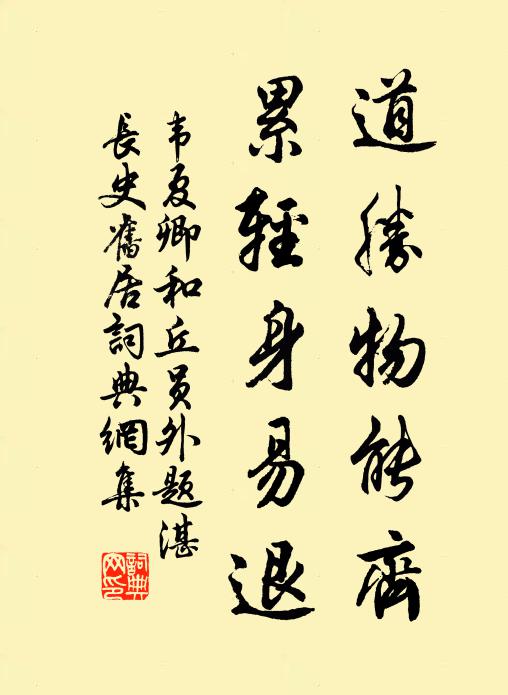 道勝物能齊
累輕身易退
韦夏卿和丘員外題湛
長史舊居詞典網集
詞典
网印